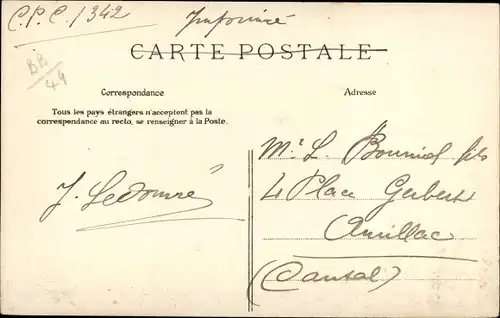 C.P.C. / 342
Imprimé
BB
49
CARTE POSTALE
Correspondance
Tous les pays étrangers n'acceptent pas la
correspondance au recto, se renseigner à la Poste.
Adresse
Mr L. Bonniol fils
4 Place Gerbert
Aurillac
(Cantal)
J.